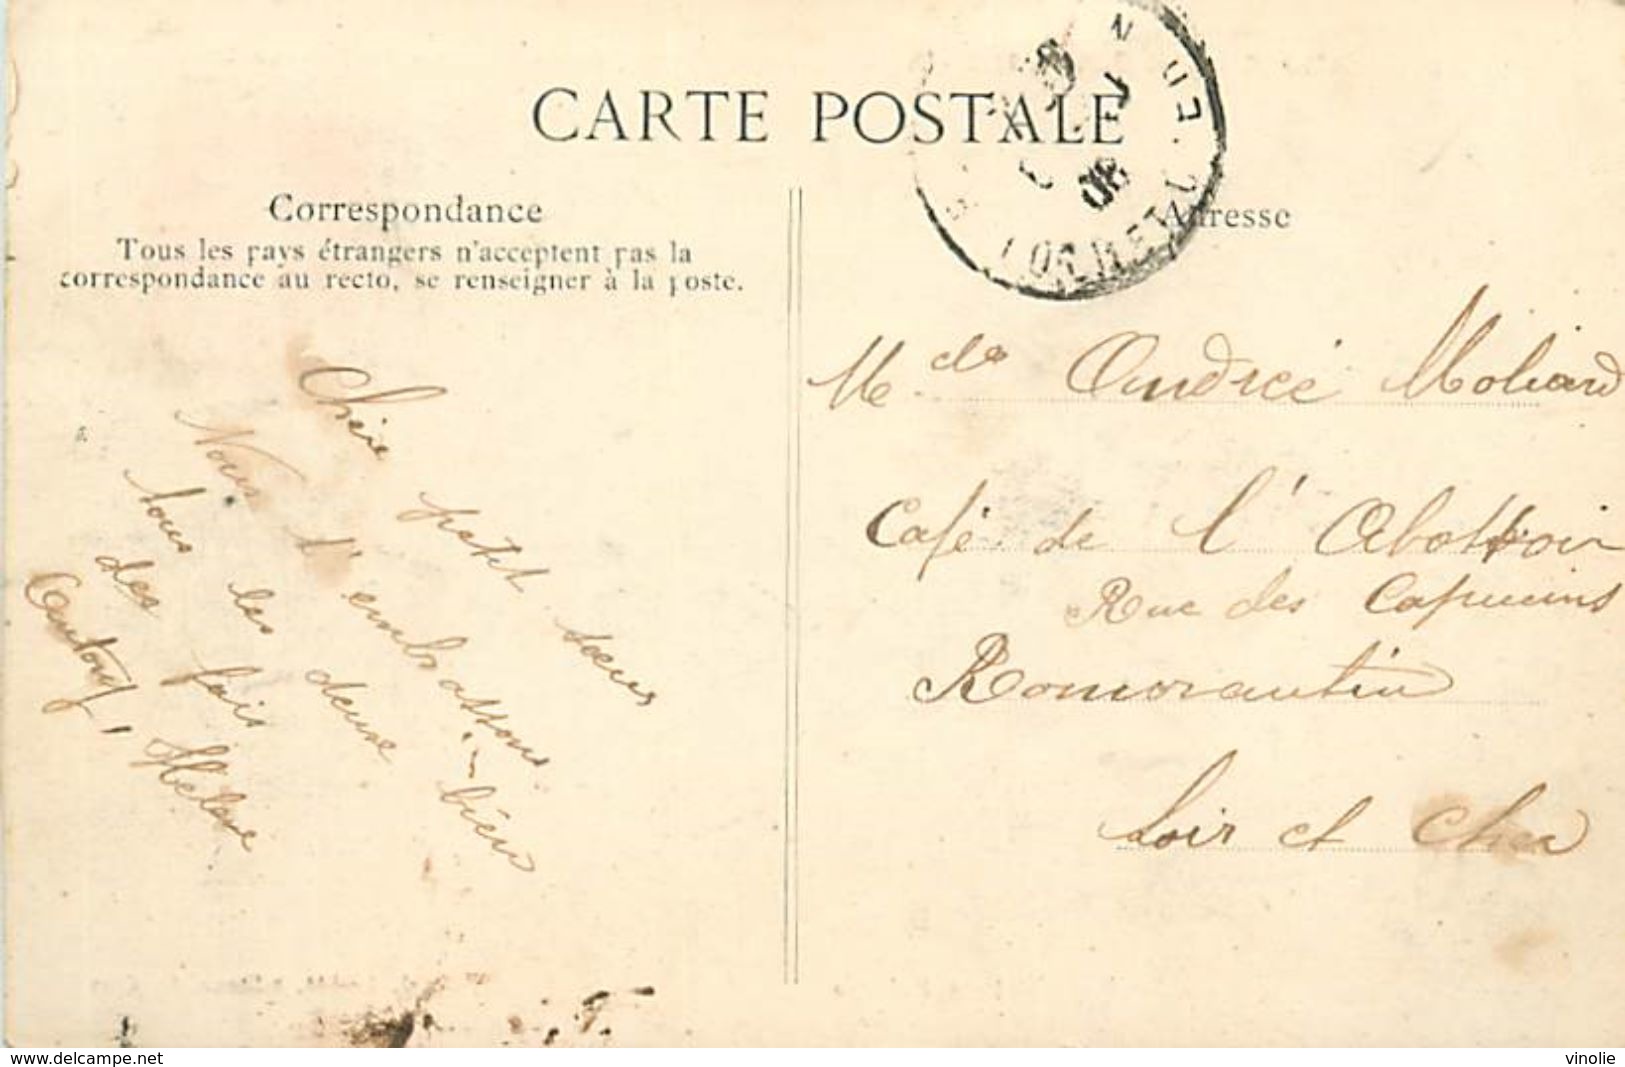 CARTE POSTALE
Correspondance
Tous les pays étrangers n'acceptent pas la
correspondance au recto, se renseigner à la poste.
Adresse
08
Chère petet sœur
Nous t'embrassons bien
tous les deux
des fois
Hélène
Mlle Andrée Moliard
Café de l'Abattoir
Rue des Capucins
Romorantin
Loir et Cher
www.delcampe.net
vinolie